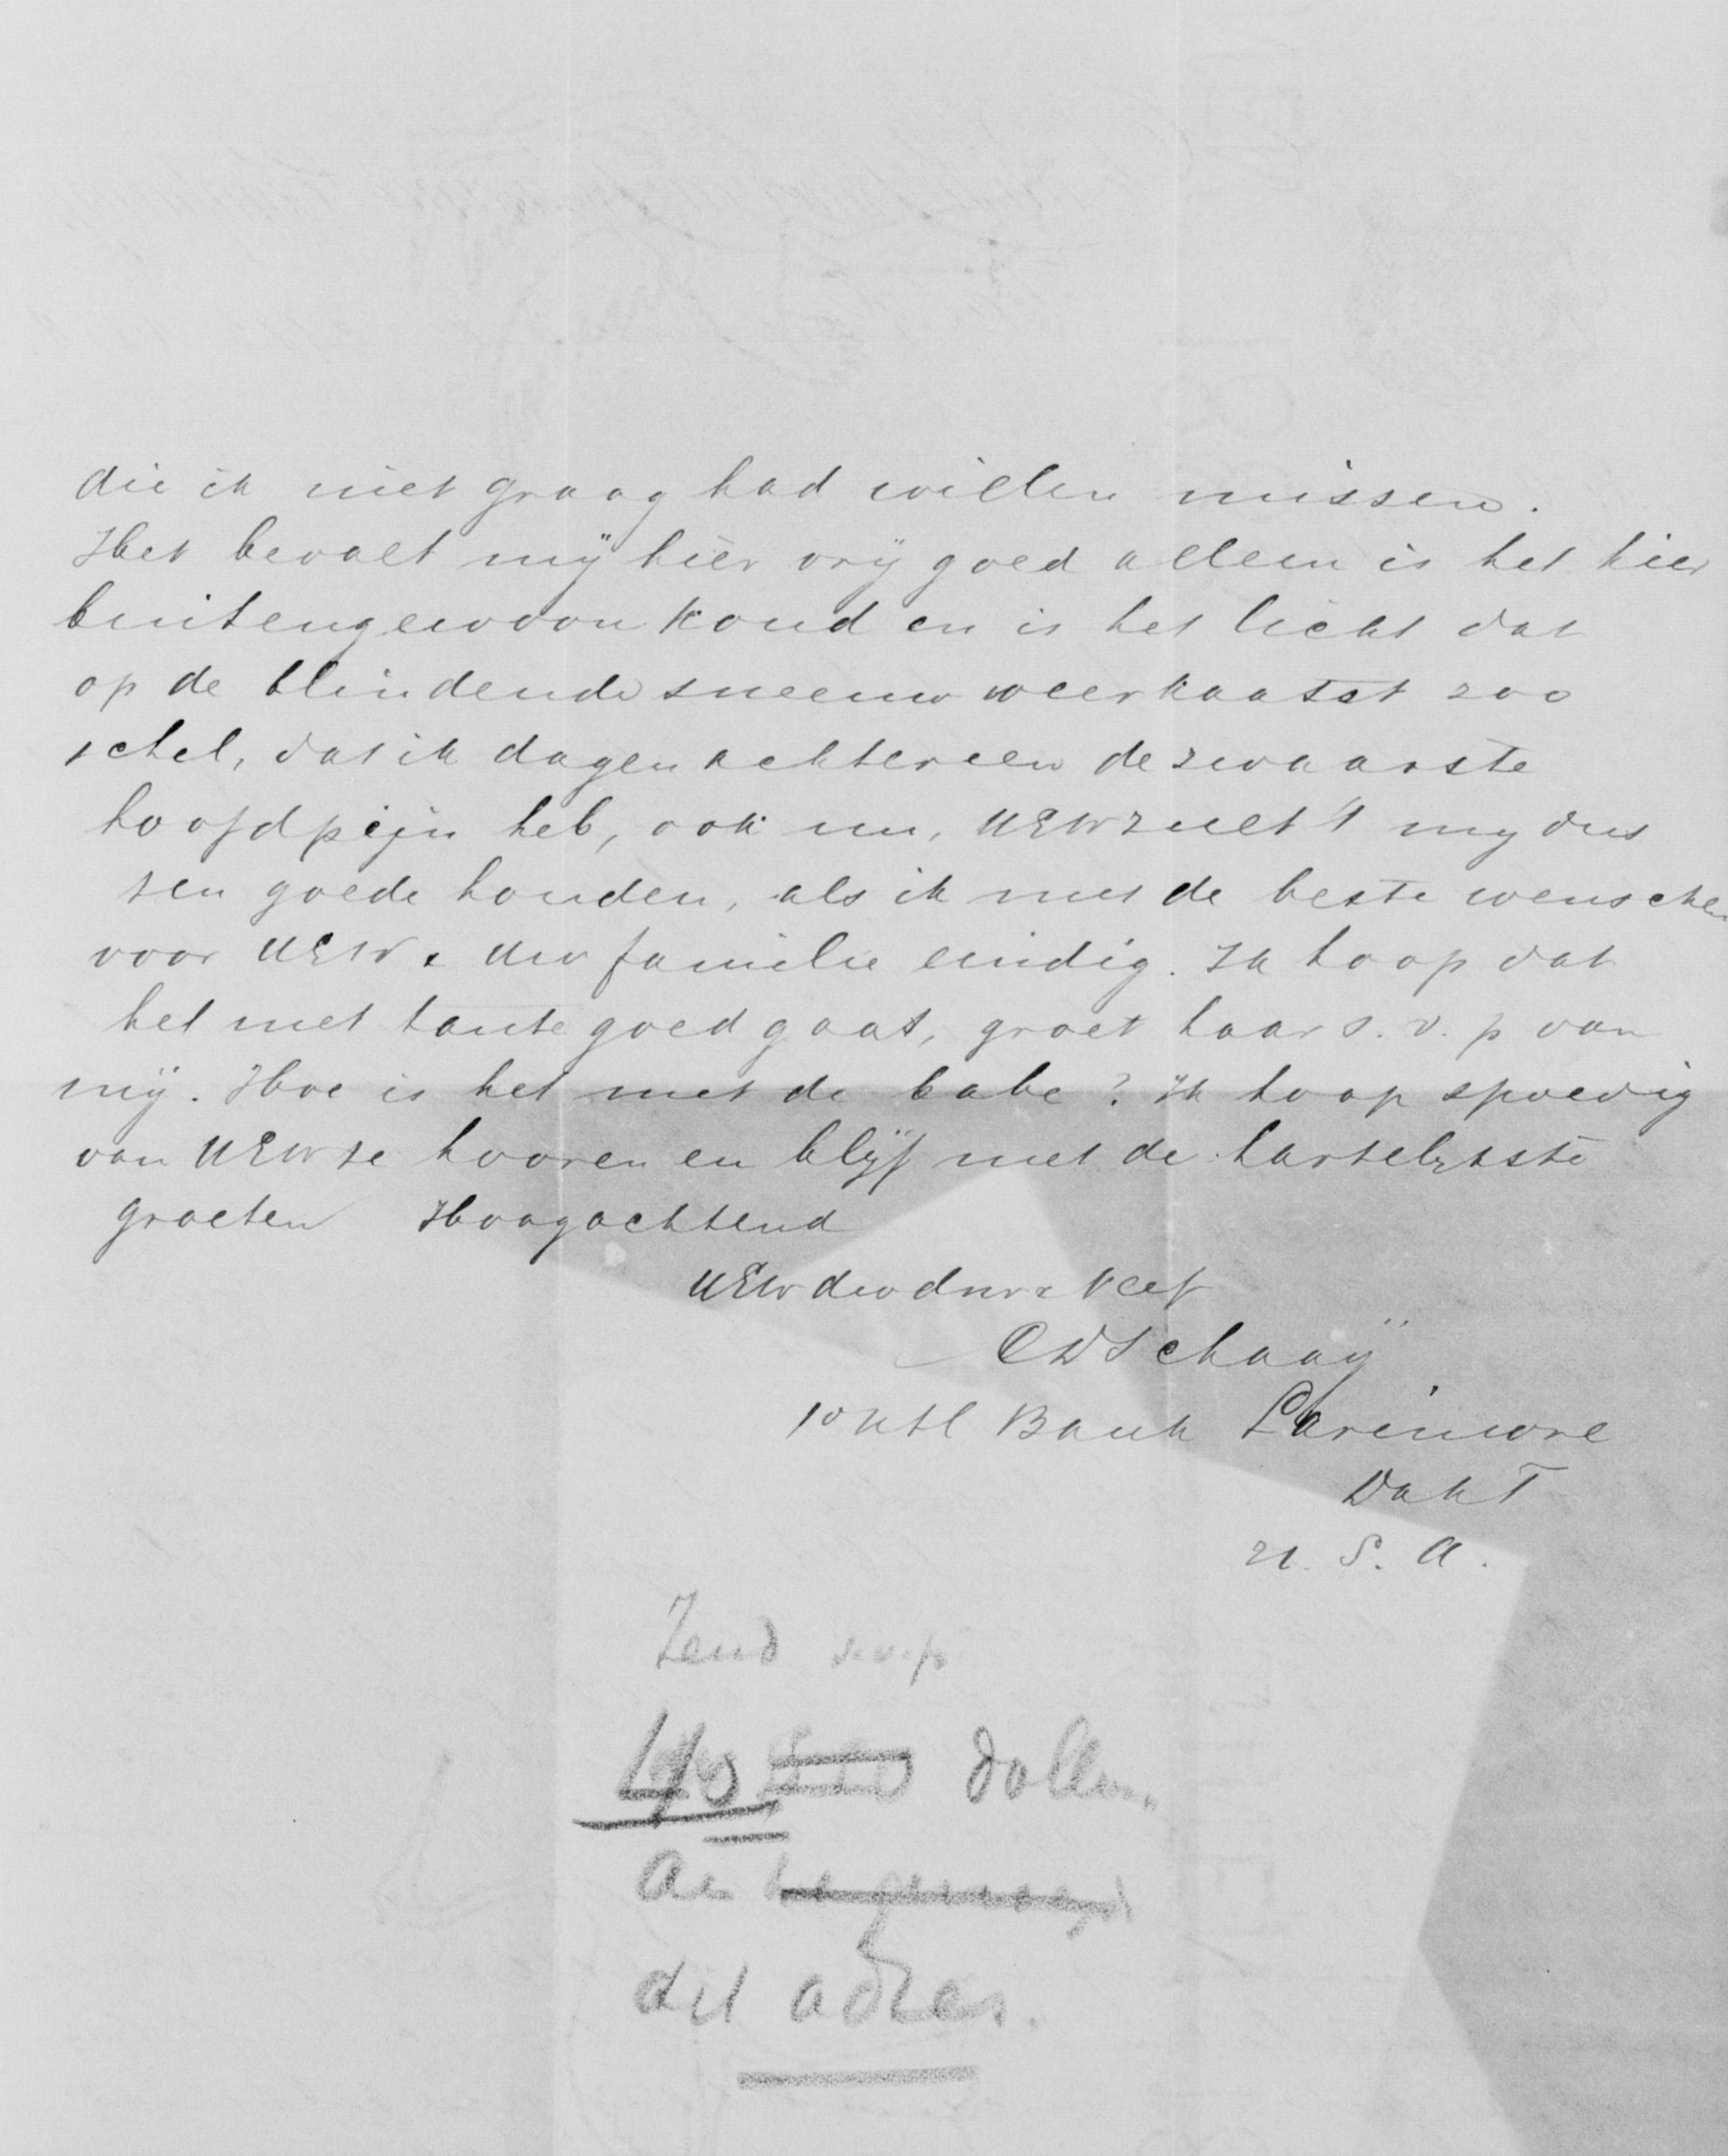 die ik niet graag had willen missen.
Het bevalt mij hier vrij goed alleen is het hier
buitengewoon koud en is het licht dat
op de blindende sneeuw weerkaatst zoo
schel, dat ik dagen achtereen de zwaarste
hoofdpijn heb, ook nu, UEW zult 't my dus
ten goede houden, als ik met de beste wenschen
voor UEW & Uw familie eindig. Ik hoop dat
het met tante goed gaat, groet haar s.v.p van
mij. Hoe is het met de babe? Ik hoop spoedig
van UEW te hooren en blijf met de hartelykste
groeten Hoogachtend
UEW dw dnr & Neef
CW Schaaÿ
Bank Larimore
Dak T
U. S. A.
Zend s.v.p.
40 dollar
Aan
dit adres.